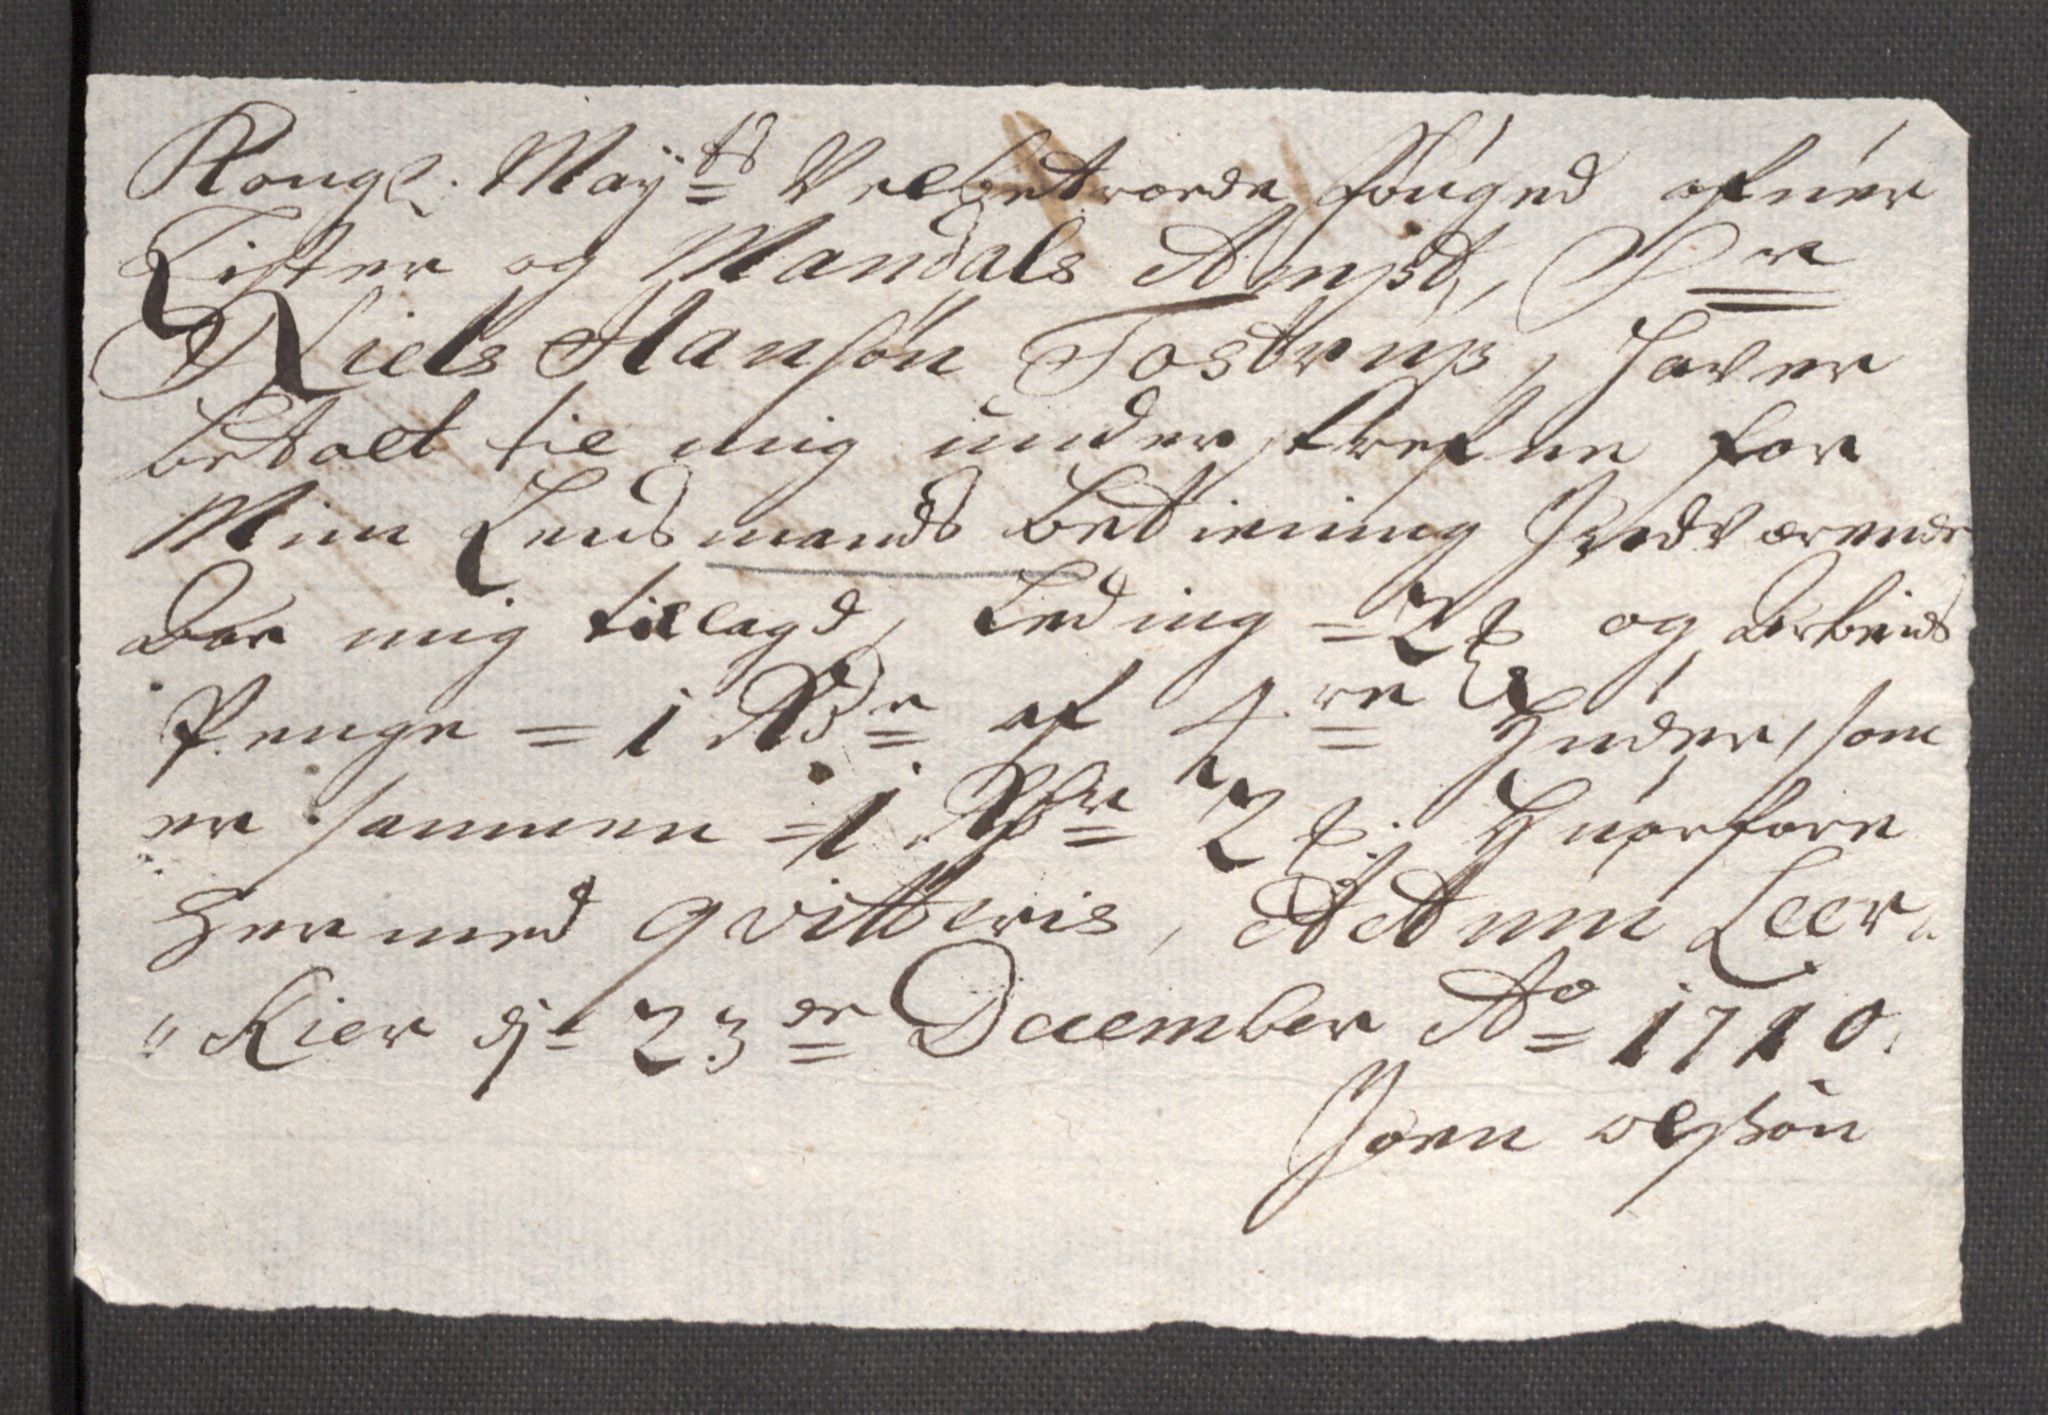 Kongl. May:ts Velbetroede fouged ofuer
Lister og Mandals Ampt, Sr
Niels Hansøn Tostrup, hafver
betalt til mig underskrefne for
Min Lensmands betiening
der mig tillagd, Leding = 2 og Arbeids
Penge = 1 Rdr af 4re Huder, som
er sammen = 1 Rdr 2. Huorfore
hermed qvitteris, Actum Leer,,
,,Kier dj 23de December Ao 1710.
Joen olssøn